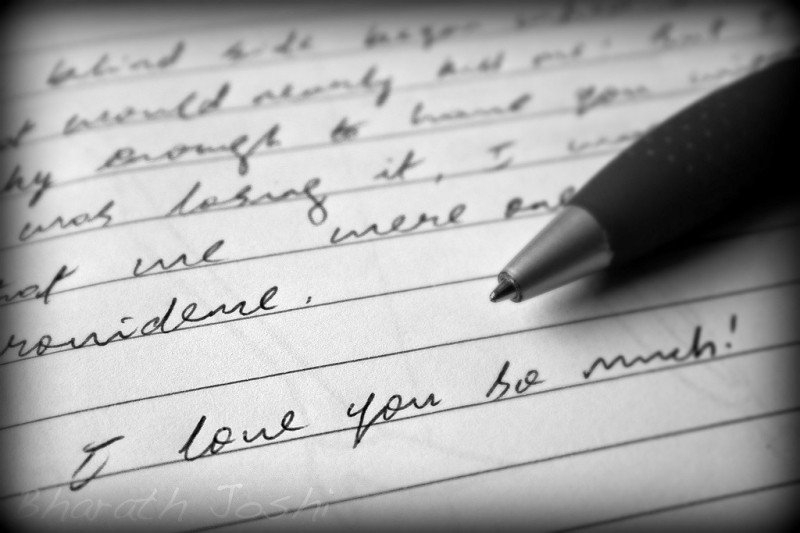 behind side began
would nearly kill me. But
enough to have you
was losing it, I was
me were one
I love you so much!
Bharath Joshi